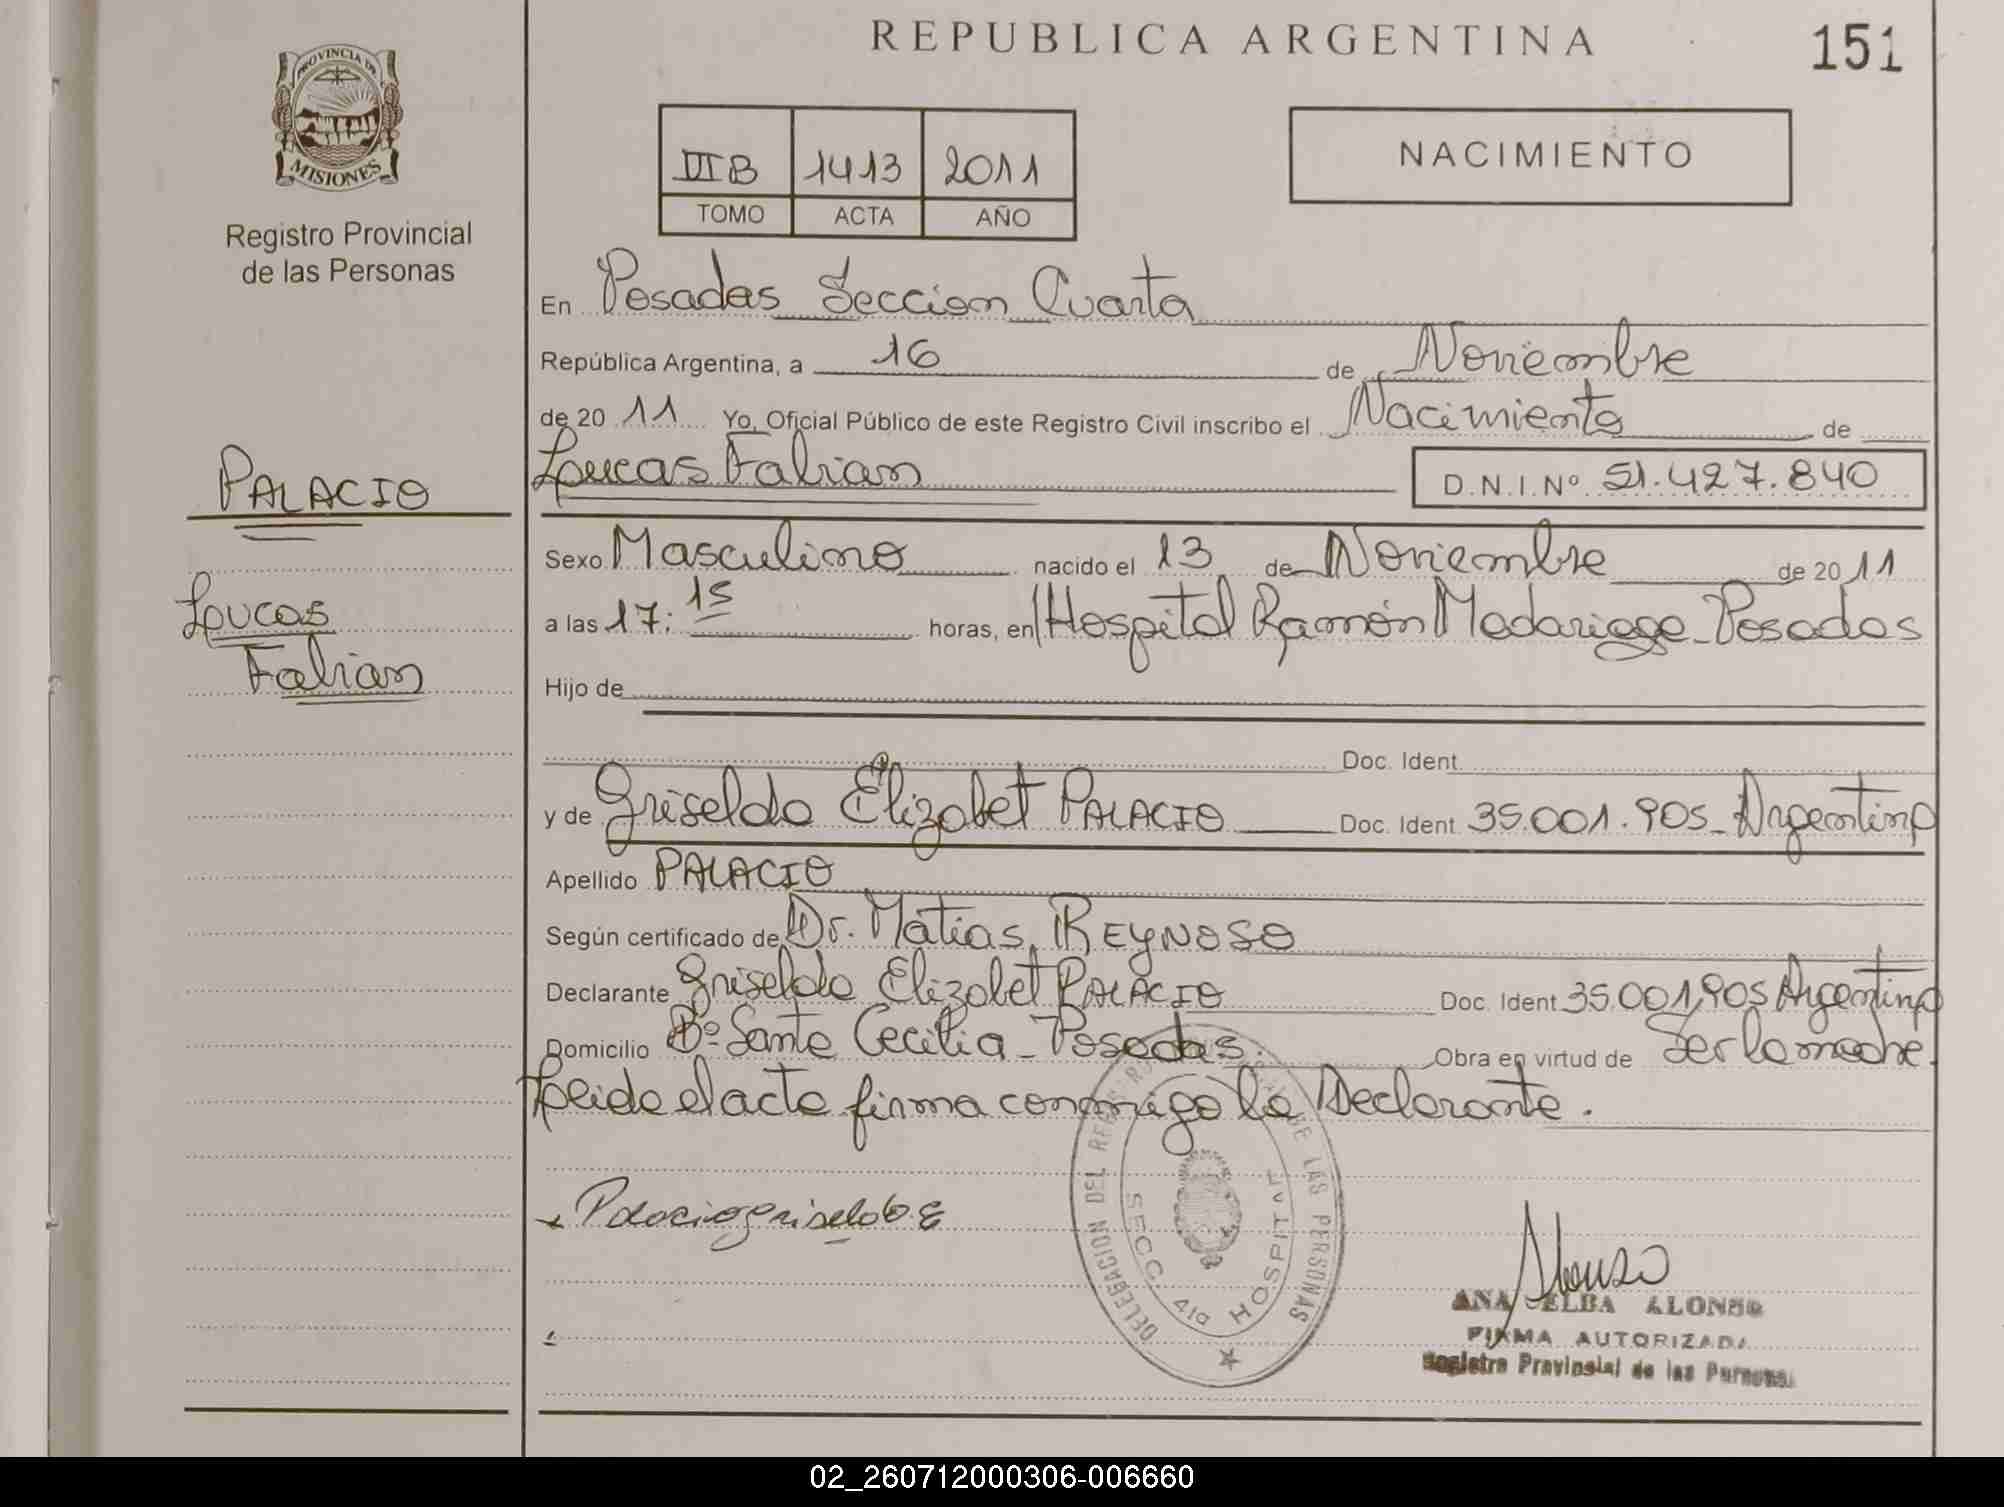 REPUBLICA ARGENTINA
151
PROVINCIA DE
MISIONES
Registro Provincial
de las Personas
III B 1413 2011
TOMO ACTA AÑO
NACIMIENTO
En Posadas Seccion Cuarta
República Argentina, a 16 de Noviembre
de 20 11 Yo, Oficial Público de este Registro Civil inscribo el Nacimiento de
Loucas Fabian
D.N.I.Nº 51.427.840
PALACIO
Loucas
Fabian
Sexo Masculino nacido el 13 de Noviembre de 20 11
a las 17:15 horas, en Hospital Ramón Madariaga - Posadas
Hijo de
Doc. Ident
y de Griselda Elizabet PALACIO Doc. Ident 35.001.905 - Argentina
Apellido PALACIO
Según certificado de Dr. Matias REYNOSO
Declarante Griselda Elizabet PALACIO Doc. Ident 35.001.905 Argentina
Domicilio Bº Santa Cecilia - Posadas. Obra en virtud de Ser la madre.
Leida el acta firma conmigo la Declarante.
Palacio griselda E
DELEGACION DEL REGISTRO DE LAS PERSONAS
SECC. 4ta HOSPITAL
Alonso
ANA ELBA ALONSO
FIRMA AUTORIZADA
Registro Provincial de las Personas
02_260712000306-006660